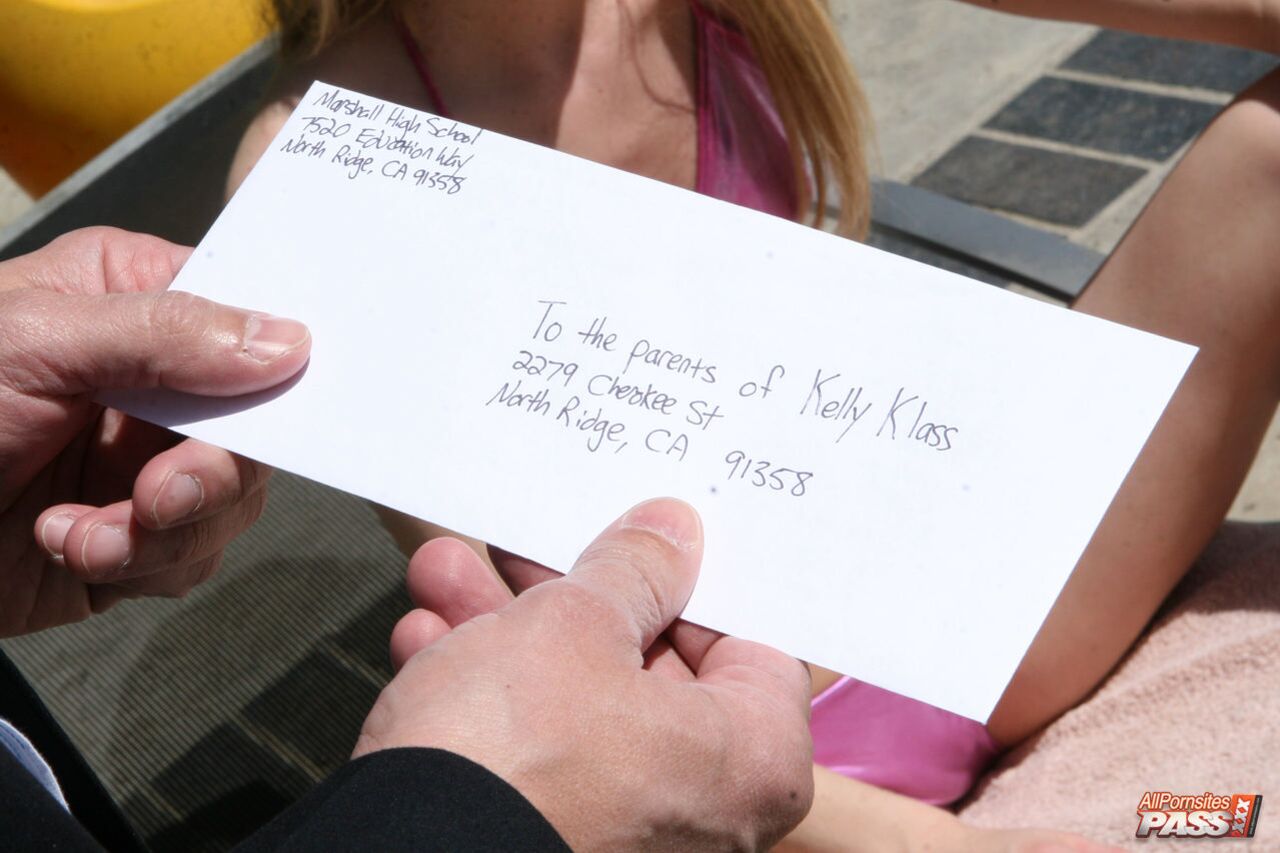 Marshall High School
7520 Education Way
North Ridge, CA 91358
To the parents of Kelly Klass
2279 Cherokee St
North Ridge, CA 91358
AllPornsites
PASS XXX